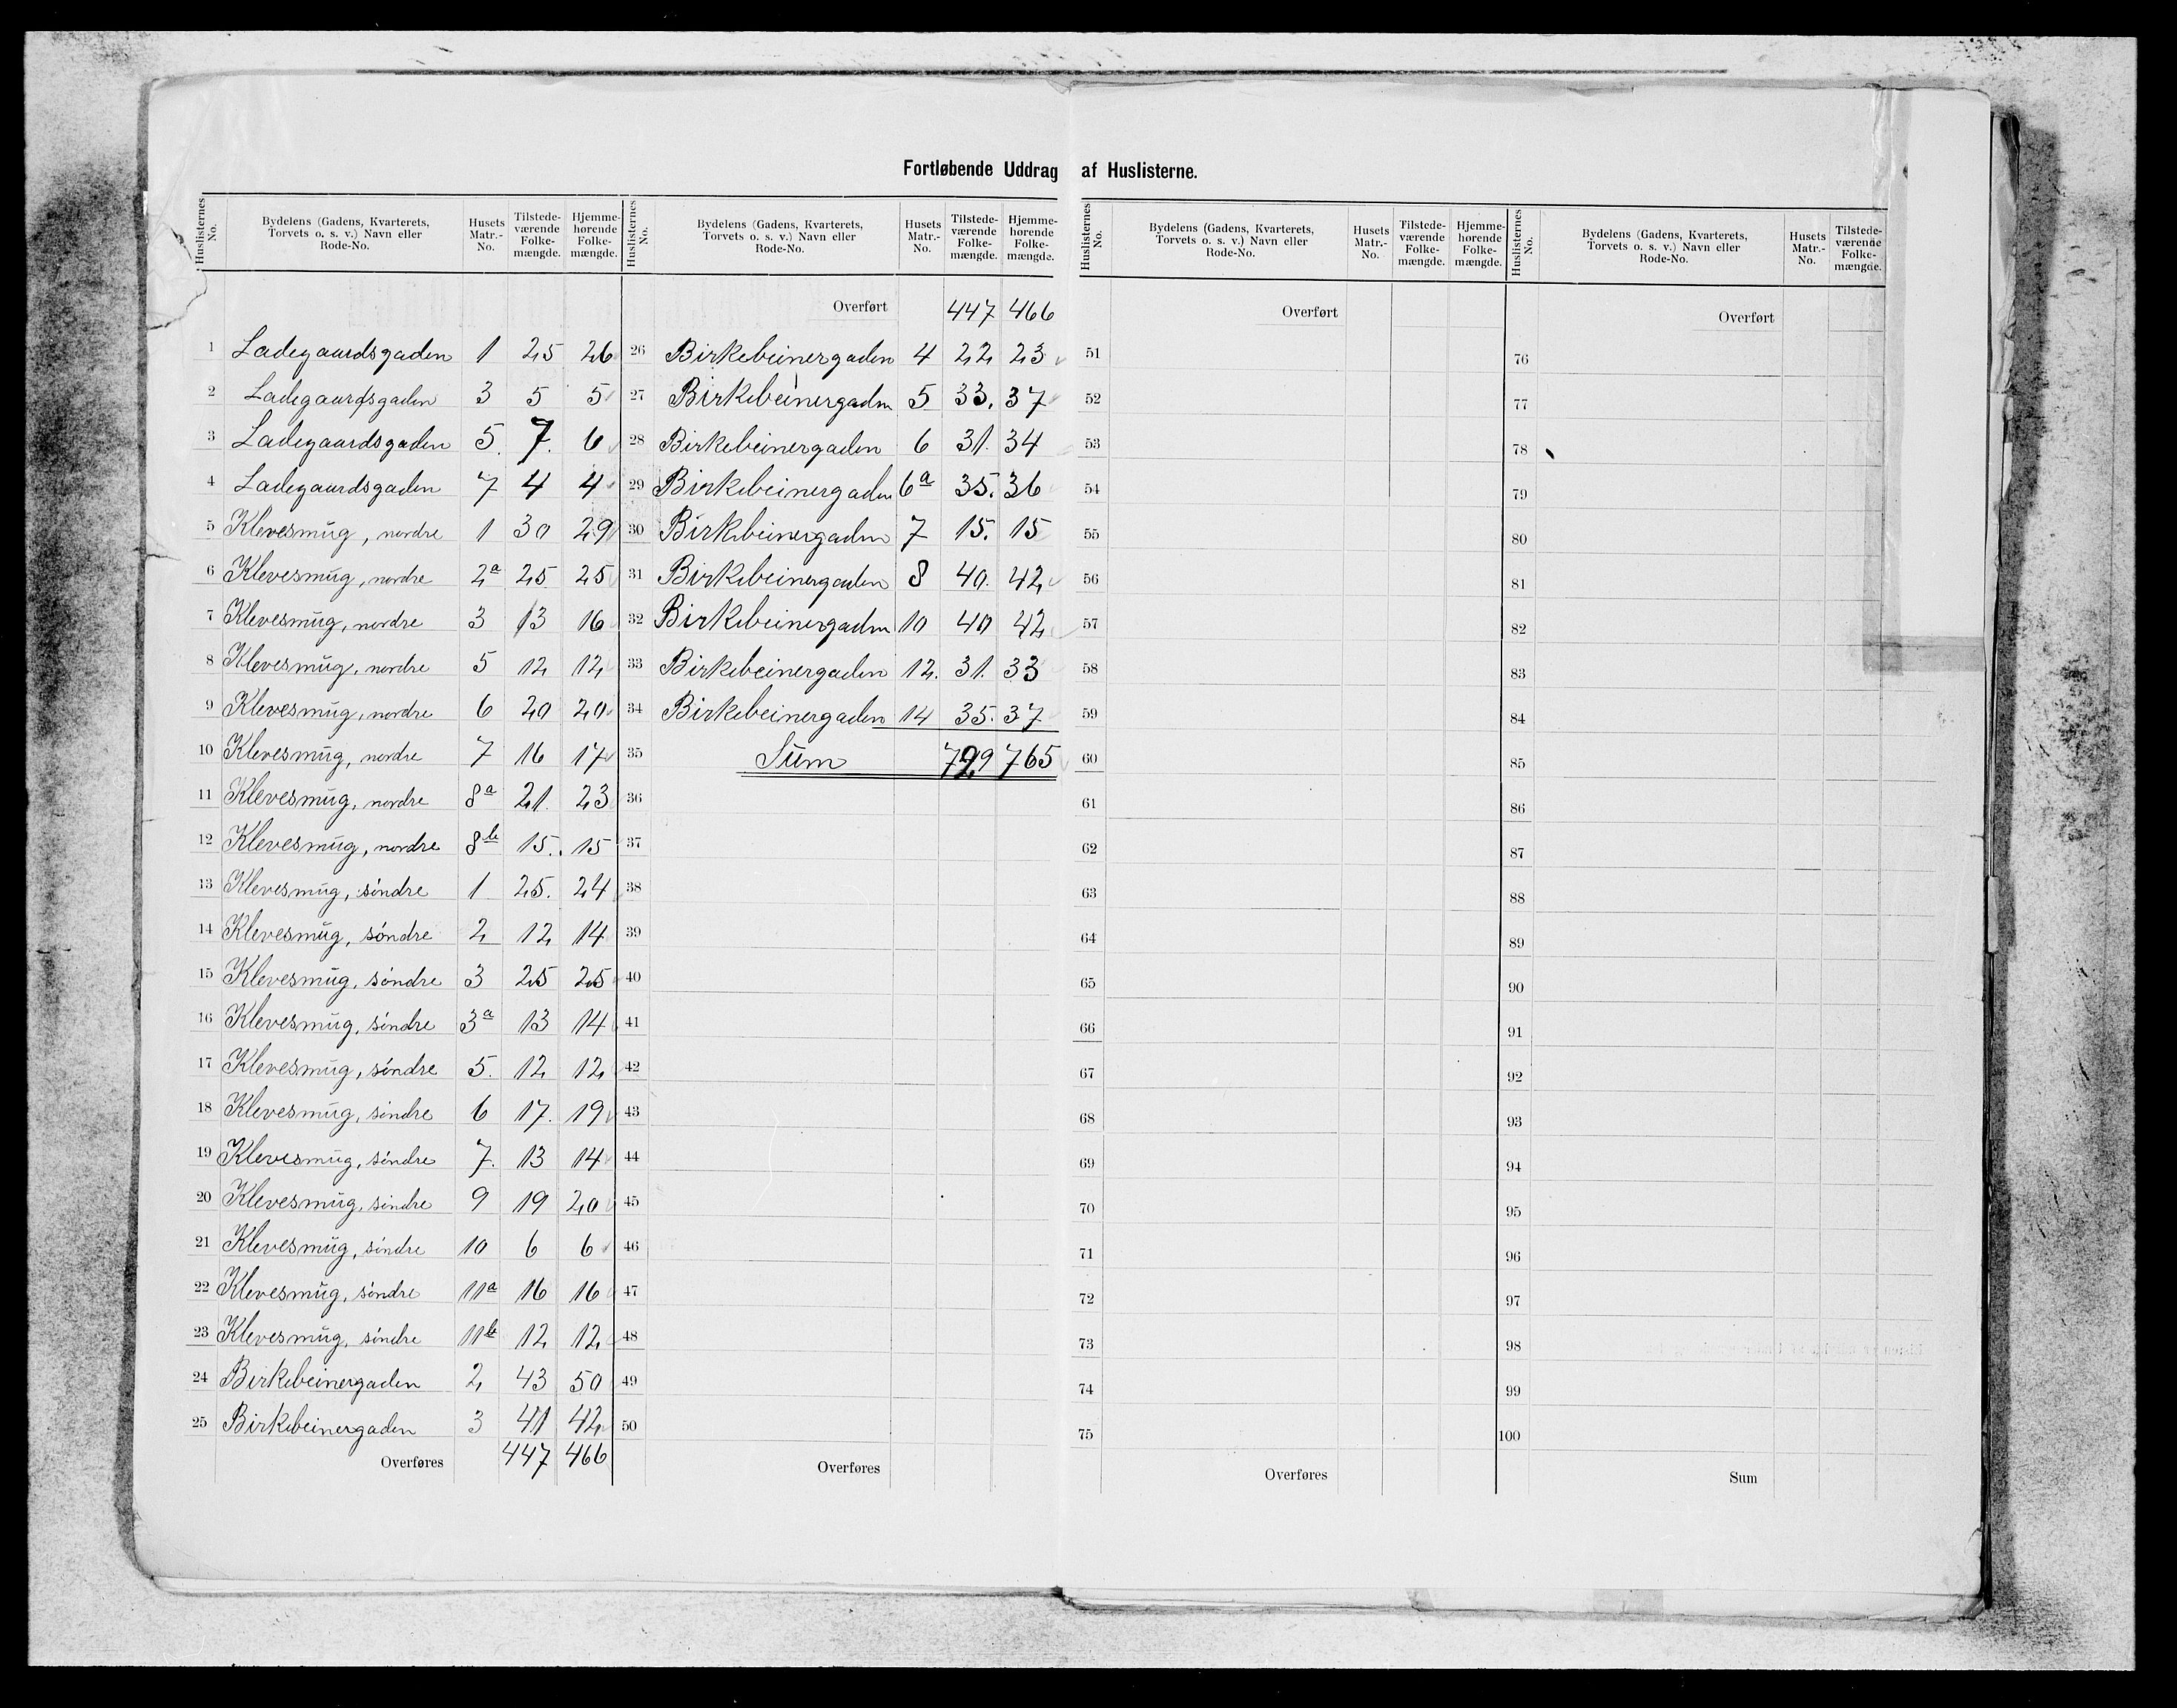 Fortløbende Uddrag af Huslisterne.
Huslisternes No. | Bydelens (Gadens, Kvarterets, Torvets o. s. v.) Navn eller Rode-No. | Husets Matr.-No. | Tilstedeværende Folkemængde. | Hjemmehørende Folkemængde.
1 Ladegaardsgaden 1 25 26
2 Ladegaardsgaden 3 5 5
3 Ladegaardsgaden 5. 7. 6
4 Ladegaardsgaden 7 4 4
5 Klevesmug, nordre 1 30 29
6 Klevesmug, nordre 2a 25 25
7 Klevesmug, nordre 3 13 16
8 Klevesmug, nordre 5 12 12
9 Klevesmug, nordre 6 20 20
10 Klevesmug, nordre 7 16 17
11 Klevesmug, nordre 8a 21. 23
12 Klevesmug, nordre 8b 15. 15
13 Klevesmug, søndre 1 25. 24
14 Klevesmug, søndre 2 12 14
15 Klevesmug, søndre 3 25 25
16 Klevesmug, søndre 3a 13 14
17 Klevesmug, søndre 5. 12 12
18 Klevesmug, søndre 6 17. 19
19 Klevesmug, søndre 7. 13 14
20 Klevesmug, søndre 9 19 20
21 Klevesmug, søndre 10 6 6
22 Klevesmug, søndre 11a 16 16
23 Klevesmug, søndre 11b 12 12
24 Birkebeinergaden 2 43 50
25 Birkebeinergaden 3 41 42
Overføres 447 466
Huslisternes No. | Bydelens (Gadens, Kvarterets, Torvets o. s. v.) Navn eller Rode-No. | Husets Matr.-No. | Tilstedeværende Folkemængde. | Hjemmehørende Folkemængde.
Overført 447 466
26 Birkebeinergaden 4 22 23
27 Birkebeinergaden 5 33. 37
28 Birkebeinergaden 6 31. 34
29 Birkebeinergaden 6a 35. 36
30 Birkebeinergaden 7 15. 15
31 Birkebeinergaden 8 40. 42
32 Birkebeinergaden 10 40 42
33 Birkebeinergaden 12. 31. 33
34 Birkebeinergaden 14 35. 37
35 Sum 729 765
36
37
38
39
40
41
42
43
44
45
46
47
48
49
50
Overføres
Huslisternes No. | Bydelens (Gadens, Kvarterets, Torvets o. s. v.) Navn eller Rode-No. | Husets Matr.-No. | Tilstedeværende Folkemængde. | Hjemmehørende Folkemængde.
Overført
51
52
53
54
55
56
57
58
59
60
61
62
63
64
65
66
67
68
69
70
71
72
73
74
75
Overføres
Huslisternes No. | Bydelens (Gadens, Kvarterets, Torvets o. s. v.) Navn eller Rode-No. | Husets Matr.-No. | Tilstedeværende Folkemængde.
Overført
76
77
78
79
80
81
82
83
84
85
86
87
88
89
90
91
92
93
94
95
96
97
98
99
100
Sum